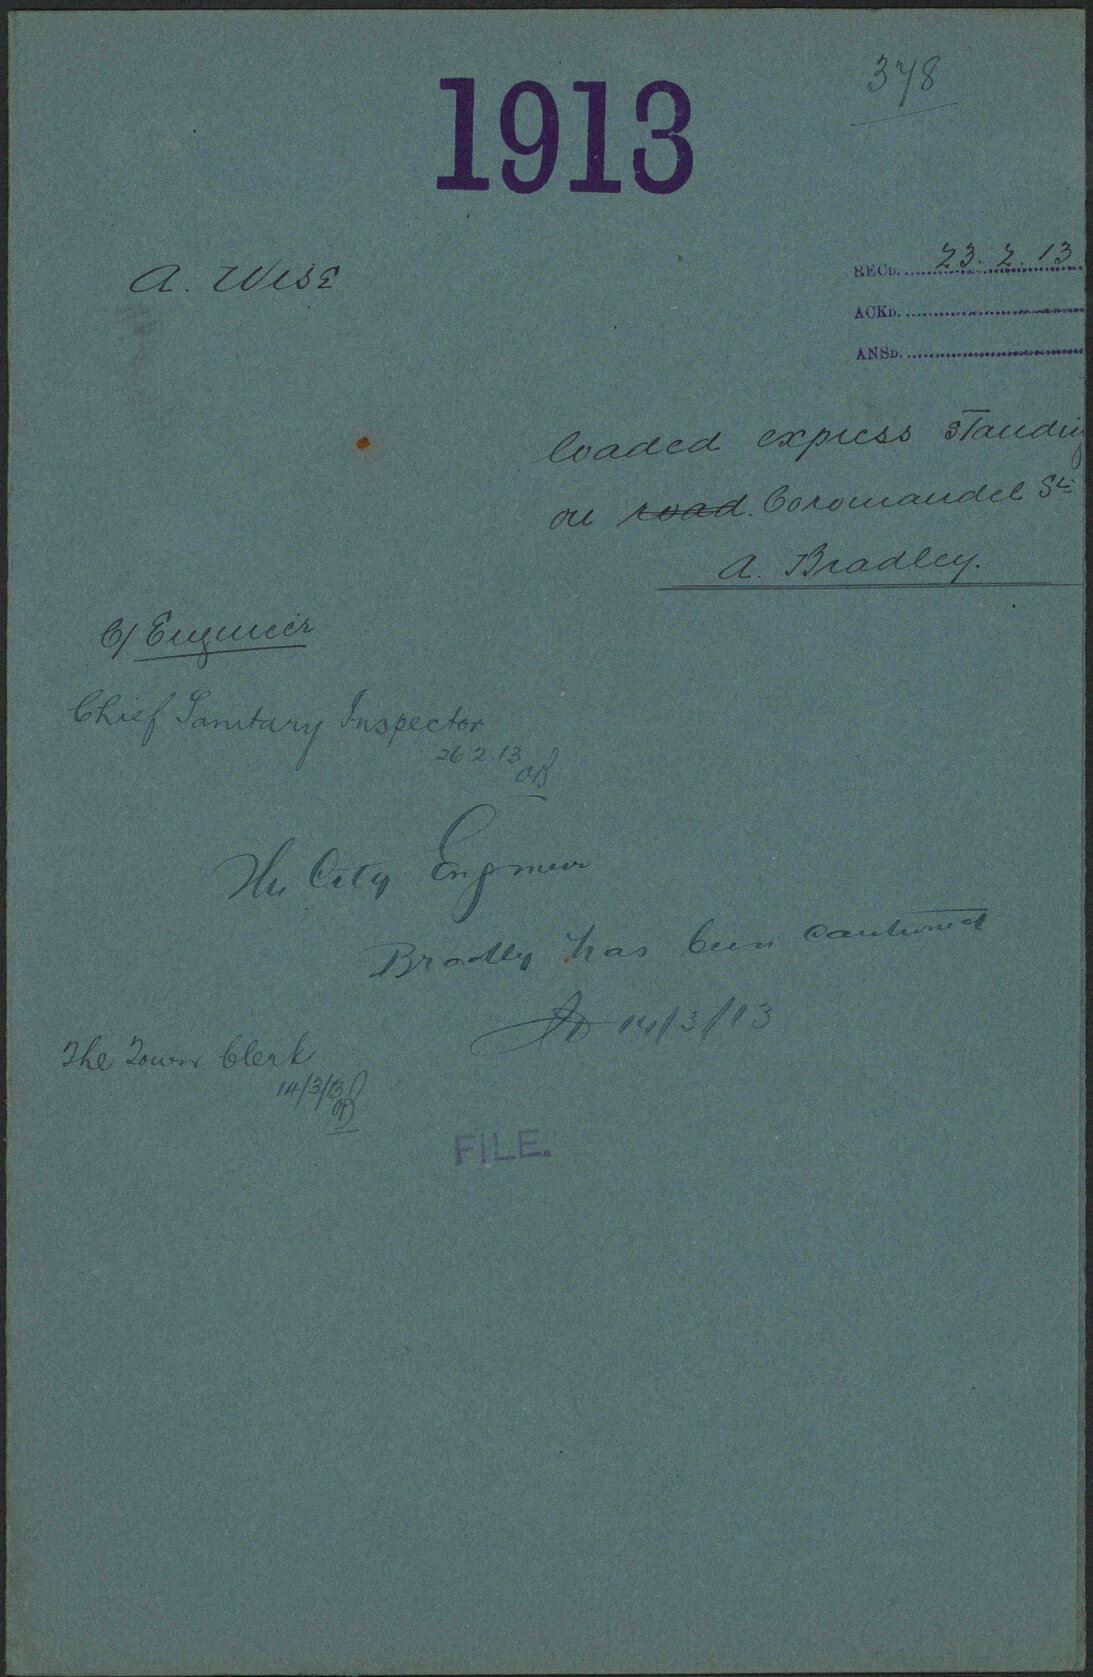 378
1913
A. Wise
RECD. 23. 2. 13
ACKD.
ANSD.
loaded express standing
on road. Coromandel St
A. Bradley.
C/ Engineer
Chief Sanitary Inspector
26.2.13
The City Engineer
Bradley has been cautioned
14/3/13
The Town Clerk
14/3/13
FILE.